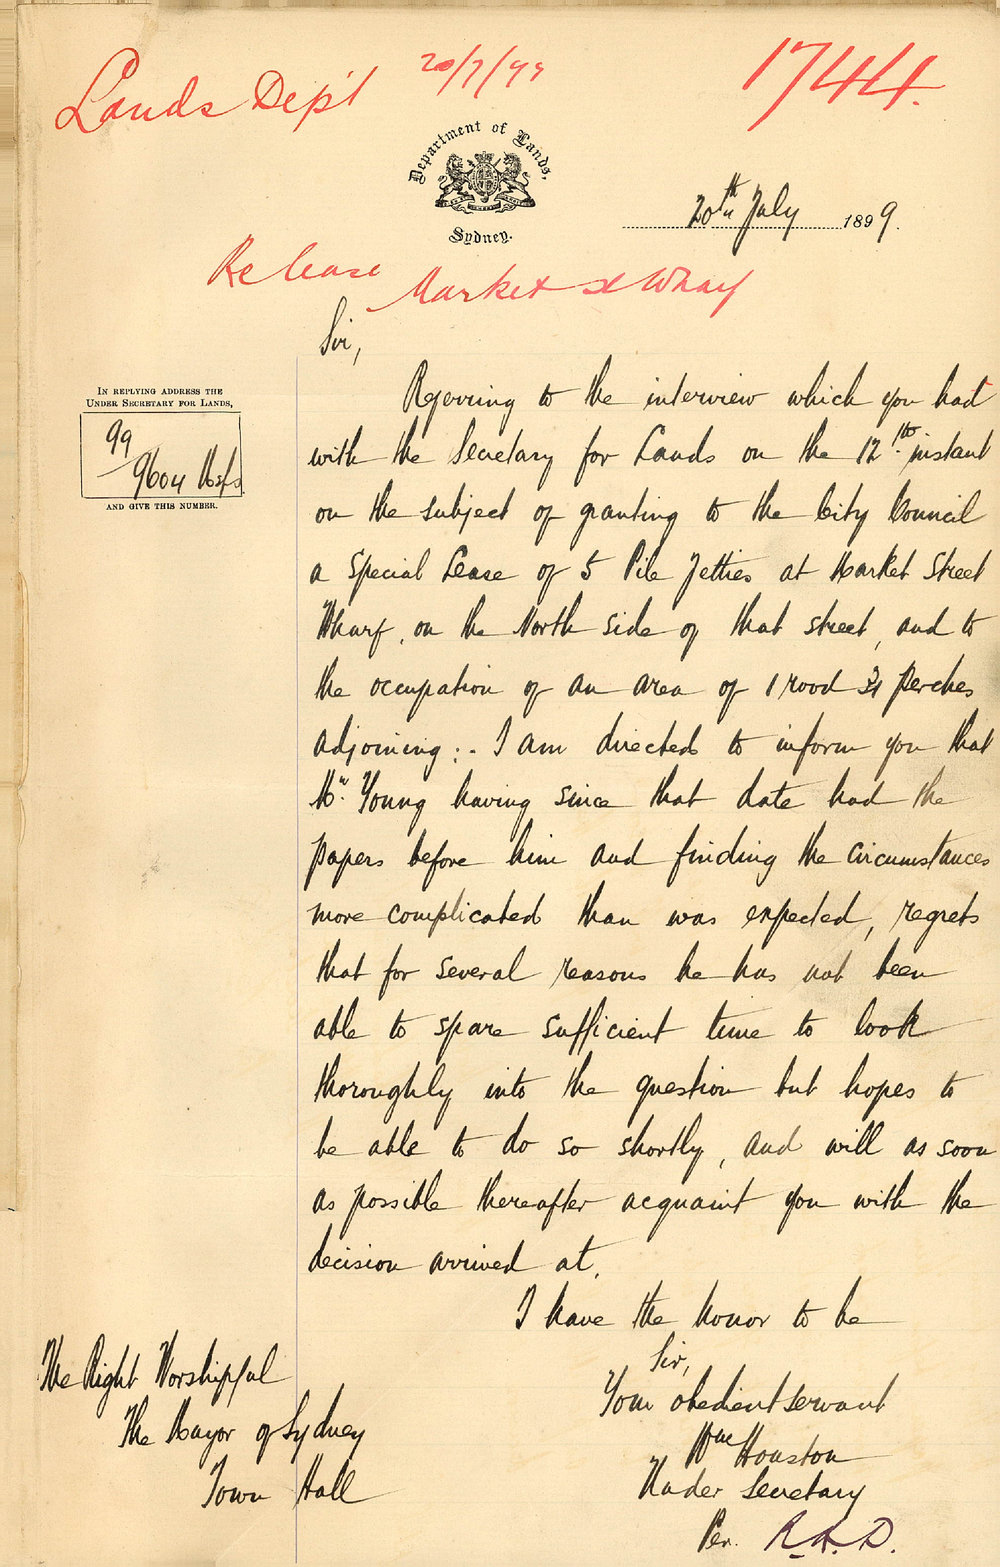 Lands Dep't 20/7/99 1744.
Department of Lands,
Sydney.
20th July 1899.
Re lease Market St Wharf
Sir,
IN REPLYING ADDRESS THE
UNDER SECRETARY FOR LANDS,
99
9604
AND GIVE THIS NUMBER.
Referring to the interview which you had
with the Secretary for Lands on the 12th instant
on the subject of granting to the City Council
a Special Lease of 5 Pile Jetties at Market Street
Wharf, on the North side of that street, and to
the occupation of an area of 1 rood 31 perches
adjoining:- I am directed to inform you that
Mr. Young having since that date had the
papers before him and finding the circumstances
more complicated than was expected, regrets
that for several reasons he has not been
able to spare sufficient time to look
thoroughly into the question but hopes to
be able to do so shortly, and will as soon
as possible thereafter acquaint you with the
decision arrived at.
I have the honor to be
Sir,
Your obedient servant
Wm Houston
Under Secretary
Per.
The Right Worshipful
The Mayor of Sydney
Town Hall